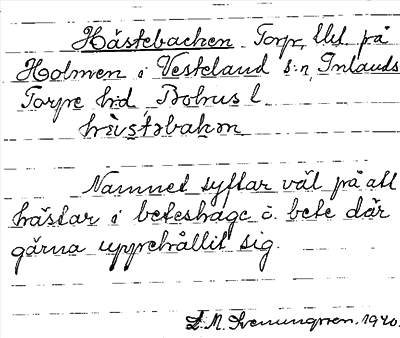 Hästebacken Torp, lht på
Holmen i Vesteland s:n, Inlands
Torpe hd Bohus l.
hɛ̀stəbakən
Namnet syftar väl på att
hästar i beteshage o. bete där
gärna uppehållit sig.
S. M. Svenungsson. 1940.